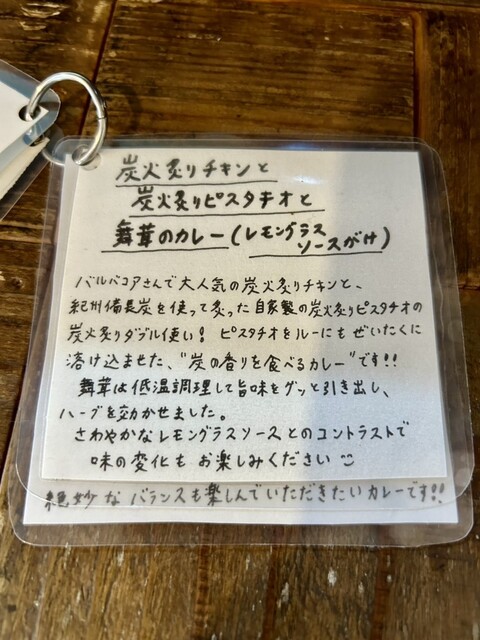 炭火炙りチキンと
炭火炙りピスタチオと
舞茸のカレー(レモングラス
ソースがけ)
バルバコアさんで大人気の炭火炙りチキンと、
紀州備長炭を使って炙った自家製の炭火炙りピスタチオの
炭火炙りダブル使い! ピスタチオをルーにもぜいたくに
溶け込ませた、"炭の香りを食べるカレー"です!!
舞茸は低温調理して旨味をグッと引き出し、
ハーブを効かせました。
さわやかなレモングラスソースとのコントラストで
味の変化もお楽しみください
絶妙なバランスも楽しんでいただきたいカレーです!!